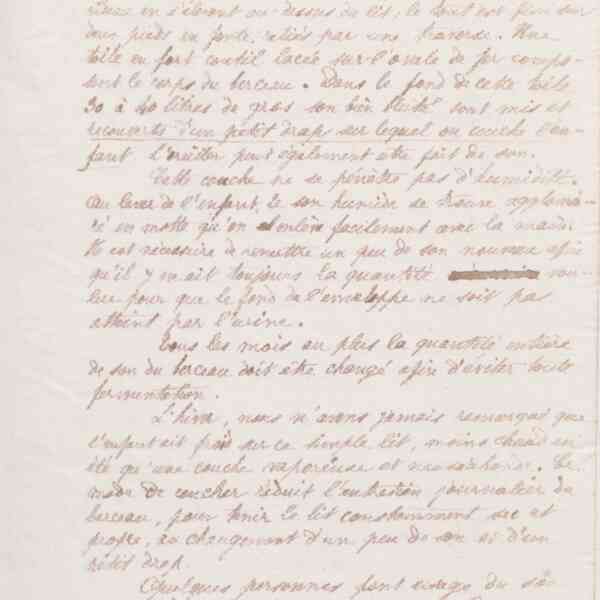 en s'élevant au-dessus du lit; le tout est fixé sur
deux pieds en fonte, reliés par une traverse. Une
toile en fort coutil lacée sur l'ovale de fer compo-
sent le corps du berceau. Dans le fond de cette toile
30 à 40 litres de gros son bien bluté sont mis et
recouverts d'un petit drap sur lequel on couche l'en-
fant. L'oreiller peut également être fait de son.
Cette couche ne se pénètre pas d'humidité.
Au lever de l'enfant, le son humide se trouve agglomé-
ré en motte qu'on enlève facilement avec la main.
Il est nécessaire de remettre un peu de son nouveau afin
qu'il y en ait toujours la quantité vou-
lue pour que le fond de l'enveloppe ne soit pas
atteint par l'urine.
Tous les mois au plus la quantité entière
de son du berceau doit être changé afin d'éviter toute
fermentation.
L'hiver, nous n'avons jamais remarqué que
l'enfant ait froid sur ce simple lit, moins chaud en
été qu'une couche vaporeuse et Ce
mode de coucher réduit l'entretien journalier du
berceau, pour tenir le lit constamment sec et
propre, au changement d'un peu de son et d'un
petit drap.
Quelques personnes font usage du